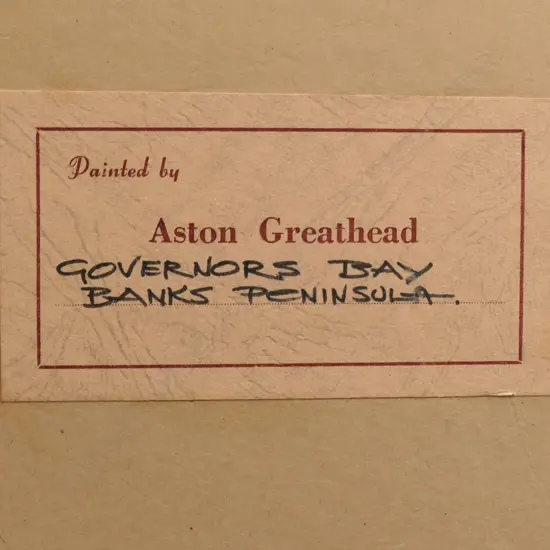 Painted by
Aston Greathead
GOVERNORS BAY
BANKS PENINSULA.